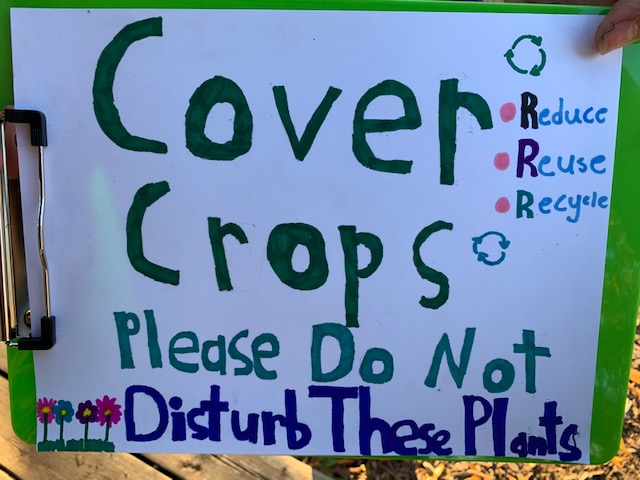 Cover
Reduce
Reuse
Recycle
Crops
Please Do Not
Disturb These Plants